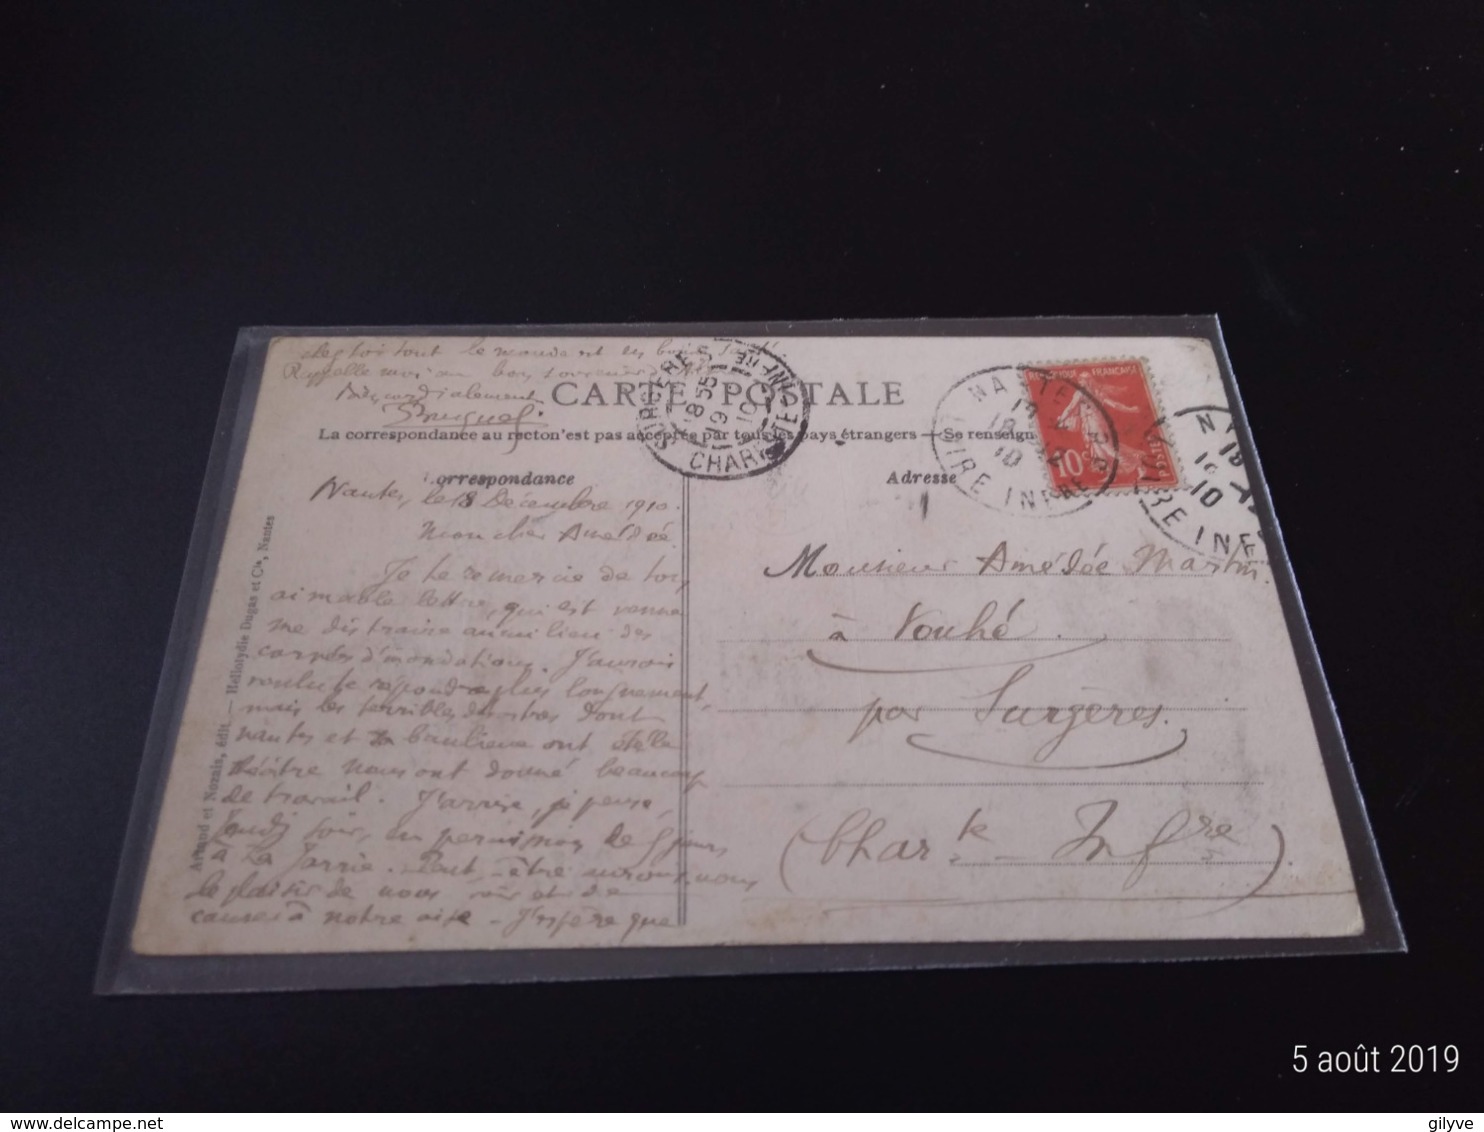 chez toi tout le monde est en bonne santé.
Rappelle moi au bon souvenir de
Bien cordialement
CARTE POSTALE
La correspondance au recto n'est pas acceptée par tous les pays étrangers — Se renseign
Correspondance
Adresse
Nantes, le 18 Décembre 1910.
Mon cher Amédée
Je te remercie de ton
aimable lettre, qui est venue
me distraire au milieu des
corvées d'inondations. J'aurais
voulu te répondre plus longuement,
mais les terribles désastres dont
Nantes et sa banlieue ont été le
théâtre nous ont donné beaucoup
de travail. J'arrive, je pense,
Jeudi soir, en permission de 5 jours
à La Jarrie. Peut-être aurons-nous
le plaisir de nous voir et de
causer à notre aise - J'espère que
Monsieur Amédée Martin.
à Vouhé.
par Surgères.
(Charte Infre)
SURGÈRES
18 55
19
10
CHARENTE INFRE
NANTES
18
10
LOIRE INFRE
RÉPUBLIQUE FRANÇAISE
10c
N
18
10
LOIRE INF
Armand et Noznis, édit. — Héliotypie Dugas et Cie, Nantes
5 août 2019
delcampe.net
gilyve